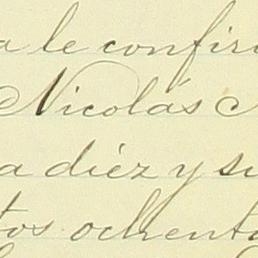 a le confir
Nicolás
a diéz y si
tos ochenta